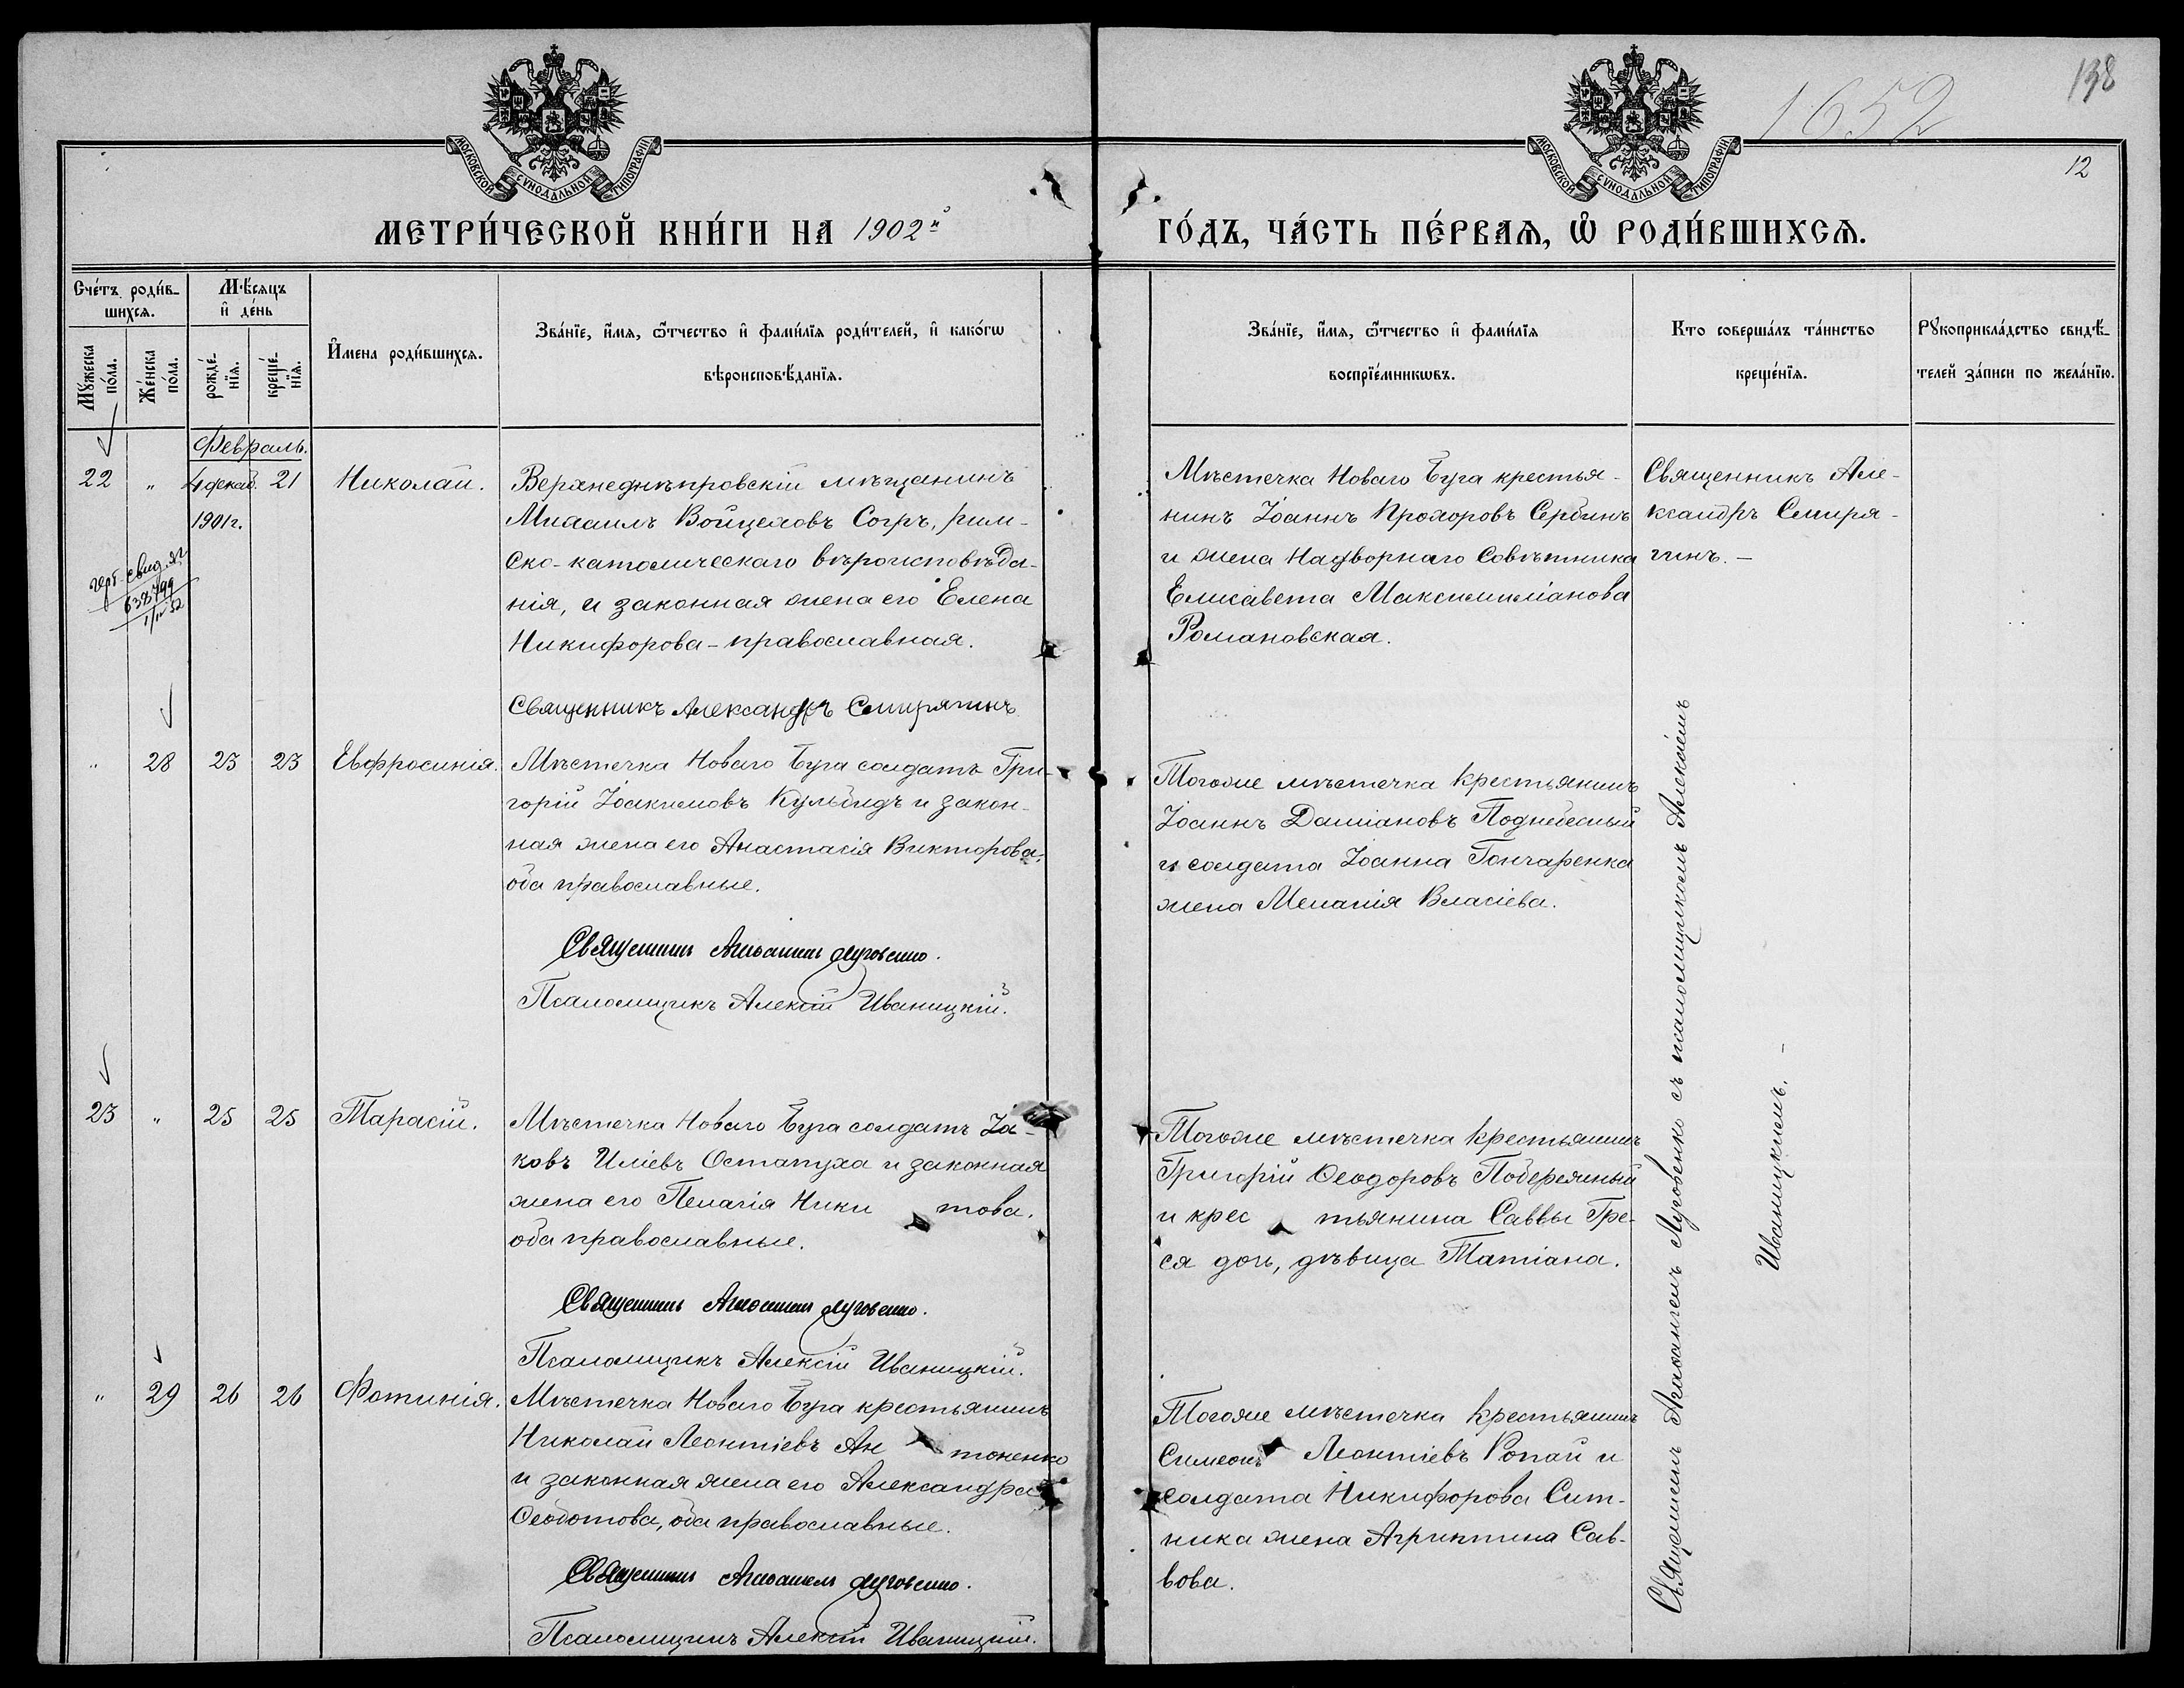 1652
138
12
МОСКОВСКОЙ СУНОДАЛЬНОЙ ТИПОГРАФІИ
МОСКОВСКОЙ СУНОДАЛЬНОЙ ТИПОГРАФІИ
МЕТРИ́ЧЕСКОЙ КНИ́ГИ НА 1902й
ГО́ДЪ, ЧА́СТЬ ПЕ́РВАѦ, Ѡ РОДИ́ВШИХСѦ.
Сче́тъ роди́в-
шихсѧ.
Мѣ́сѧцъ
и҆ де́нь
Мꙋ́жеска
по́ла.
Же́нска
по́ла.
рожде́-
нїѧ.
креще́-
нїѧ.
И҆мена роди́вшихсѧ.
Зва́нїе, и҆́мѧ, ѻ҆́тчество и҆ фами́лїѧ роди́телей, и҆ како́гѡ
вѣроисповѣ́данїѧ.
Зва́нїе, и҆́мѧ, ѻ҆́тчество и҆ фами́лїѧ
воспрїе́мникѡвъ.
Кто соверша́лъ та́инство
креще́нїѧ.
Рꙋкоприкла́дство свидѣ́-
телей за́писи по жела́нїю.
Февраль.
22 " 4 декаб. 21 Николай.
1901 г.
герб. свид.
638799
Верхнеднѣпровскій мѣщанинъ
Михаилъ Войцеховъ Согръ, рим-
ско-католическаго вѣроисповѣда-
нія, и законная жена его Елена
Никифорова - православная.
Священникъ Александръ Смирягинъ
Мѣстечка Новаго Буга крестья-
нинъ Іоаннъ Прохоровъ Сербинъ
и жена Надворнаго Совѣтника
Елисавета Максимиліанова
Романовская.
Священникъ Але-
ксандръ Смиря-
гинъ. -
" 28 23 23 Евфросинія.
Мѣстечка Новаго Буга солдатъ Гри-
горій Іоакимовъ Кульбидъ и закон-
ная жена его Анастасія Викторова,
оба православные.
Священникъ Агаѳангелъ Луговенко.
Псаломщикъ Алексій Иваницкій.
Тогоже мѣстечка крестьянинъ
Іоаннъ Даміановъ Поднебесный
и солдата Іоанна Гончаренка
жена Меланія Власіева.
23 " 25 25 Тарасій.
Мѣстечка Новаго Буга солдатъ Іа-
ковъ Иліевъ Остапуха и законная
жена его Пелагія Никитова,
оба православные.
Священникъ Агаѳангелъ Луговенко.
Псаломщикъ Алексій Иваницкій.
Тогоже мѣстечка крестьянинъ
Григорій Ѳеодоровъ Побережный
и крестьянина Саввы Гре-
ся дочь, дѣвица Татіана.
" 29 26 26 Фотинія.
Мѣстечка Новаго Буга крестьянинъ
Николай Леонтіевъ Антоненко
и законная жена его Александра
Ѳеодотова, оба православные.
Священникъ Агаѳангелъ Луговенко.
Псаломщикъ Алексій Иваницкій.
Тогоже мѣстечка крестьянинъ
Симеонъ Леонтіевъ Ропай и
солдата Никифорова Сит-
ника жена Агриппина Сав-
вова.
Священникъ Агаѳангелъ Луговенко съ псаломщикомъ Алексіемъ
Иваницкимъ. -